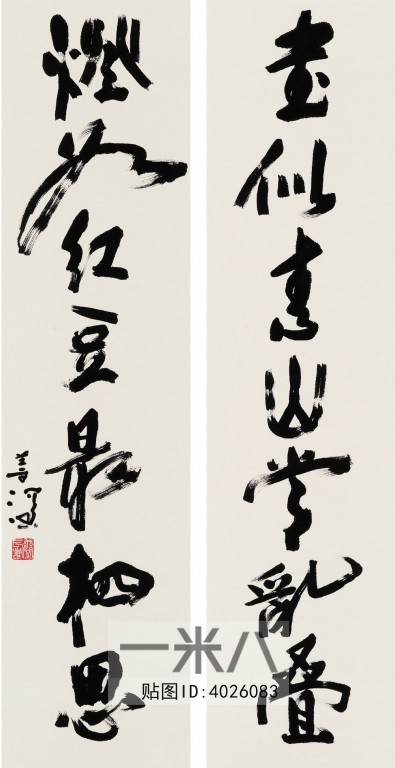 書似青山常亂叠
燈如红豆最相思
一米八
贴图ID:4026083